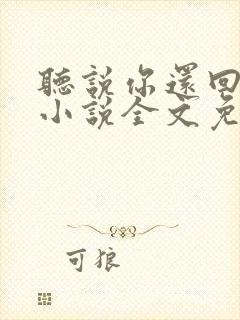 聽說你還回
小說全文免
可狼